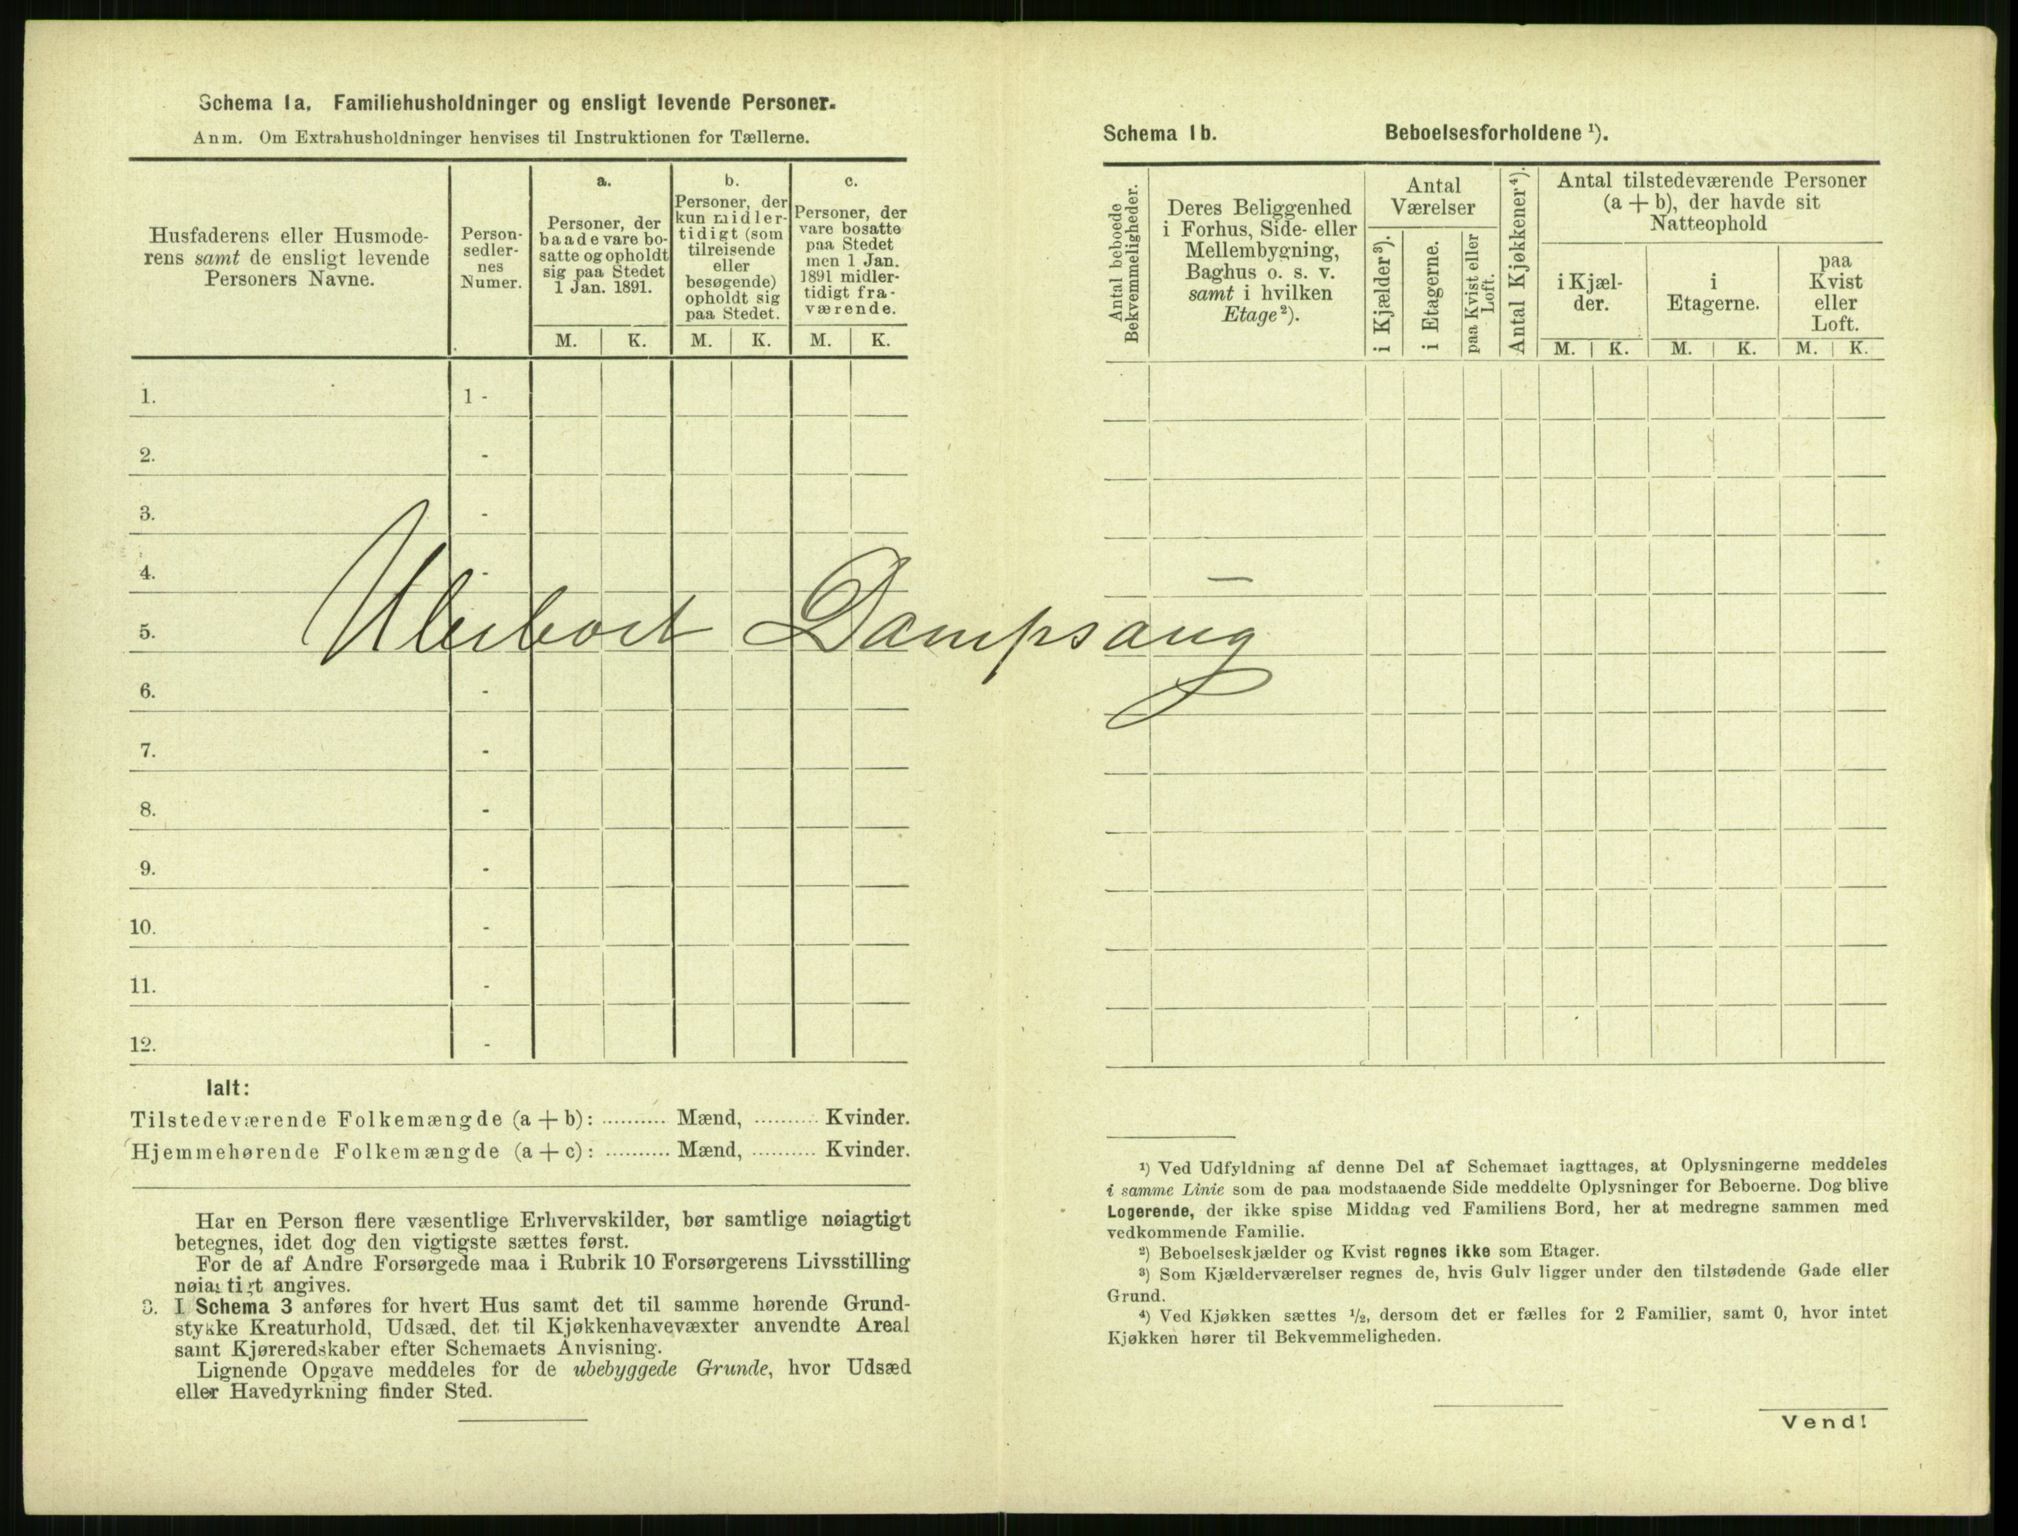 Schema 1a. Familiehusholdninger og ensligt levende Personer.
Anm. Om Extrahusholdninger henvises til Instruktionen for Tællerne.
Husfaderens eller Husmode-
rens samt de ensligt levende
Personers Navne.
Person-
sedler-
nes
Numer.
a.
Personer, der
baade vare bo-
satte og opholdt
sig paa Stedet
1 Jan. 1891.
b.
Personer, der
kun midler-
tidigt (som
tilreisende
eller
besøgende)
opholdt sig
paa Stedet.
c.
Personer, der
vare bosatte
paa Stedet
men 1 Jan.
1891 midler-
tidigt fra-
værende.
M. K. M. K. M. K.
1. 1 -
2. -
3. -
4. -
5.
6. -
7. -
8. -
9. -
10. -
11. -
12. -
Ubeboet Dampsaug
Ialt:
Tilstedeværende Folkemængde (a + b): .......... Mænd, .......... Kvinder.
Hjemmehørende Folkemængde (a + c): .......... Mænd, .......... Kvinder.
Har en Person flere væsentlige Erhvervskilder, bør samtlige nøiagtigt
betegnes, idet dog den vigtigste sættes først.
For de af Andre Forsørgede maa i Rubrik 10 Forsørgerens Livsstilling
nøiagtigt angives.
3. I Schema 3 anføres for hvert Hus samt det til samme hørende Grund-
stykke Kreaturhold, Udsæd, det til Kjøkkenhavevæxter anvendte Areal
samt Kjøreredskaber efter Schemaets Anvisning.
Lignende Opgave meddeles for de ubebyggede Grunde, hvor Udsæd
eller Havedyrkning finder Sted.
Schema 1b. Beboelsesforholdene ¹).
Antal beboede
Bekvemmeligheder.
Deres Beliggenhed
i Forhus, Side- eller
Mellembygning,
Baghus o. s. v.
samt i hvilken
Etage²).
Antal
Værelser
i Kjælder³).
i Etagerne.
paa Kvist eller
Loft.
Antal Kjøkkener⁴).
Antal tilstedeværende Personer
(a + b), der havde sit
Natteophold
i Kjæl-
der.
i
Etagerne.
paa
Kvist
eller
Loft.
M. K. M. K. M. K.
¹) Ved Udfyldning af denne Del af Schemaet iagttages, at Oplysningerne meddeles
i samme Linie som de paa modstaaende Side meddelte Oplysninger for Beboerne. Dog blive
Logerende, der ikke spise Middag ved Familiens Bord, her at medregne sammen med
vedkommende Familie.
²) Beboelseskjælder og Kvist regnes ikke som Etager.
³) Som Kjælderværelser regnes de, hvis Gulv ligger under den tilstødende Gade eller
Grund.
⁴) Ved Kjøkken sættes ¹/₂, dersom det er fælles for 2 Familier, samt 0, hvor intet
Kjøkken hører til Bekvemmeligheden.
Vend!